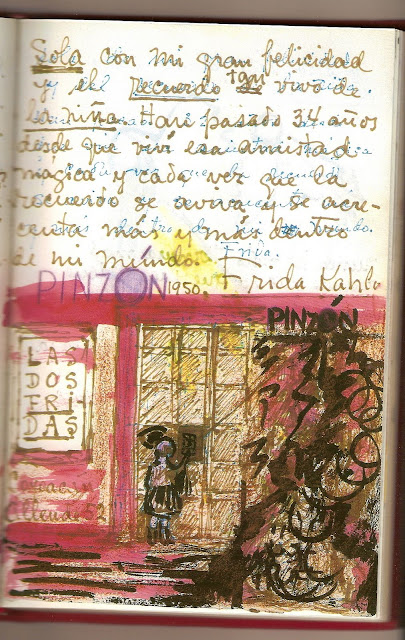 Sola con mi gran felicidad
y el recuerdo tan vivo de
la niña. Han pasado 34 años
desde que viví esa amistad
mágica y cada vez que la
recuerdo se aviva y se acre-
centa más y más dentro
de mi mundo.
Frida.
PINZÓN 1950. Frida Kahlo
PINZÓN
LAS
DOS
FRI
DAS